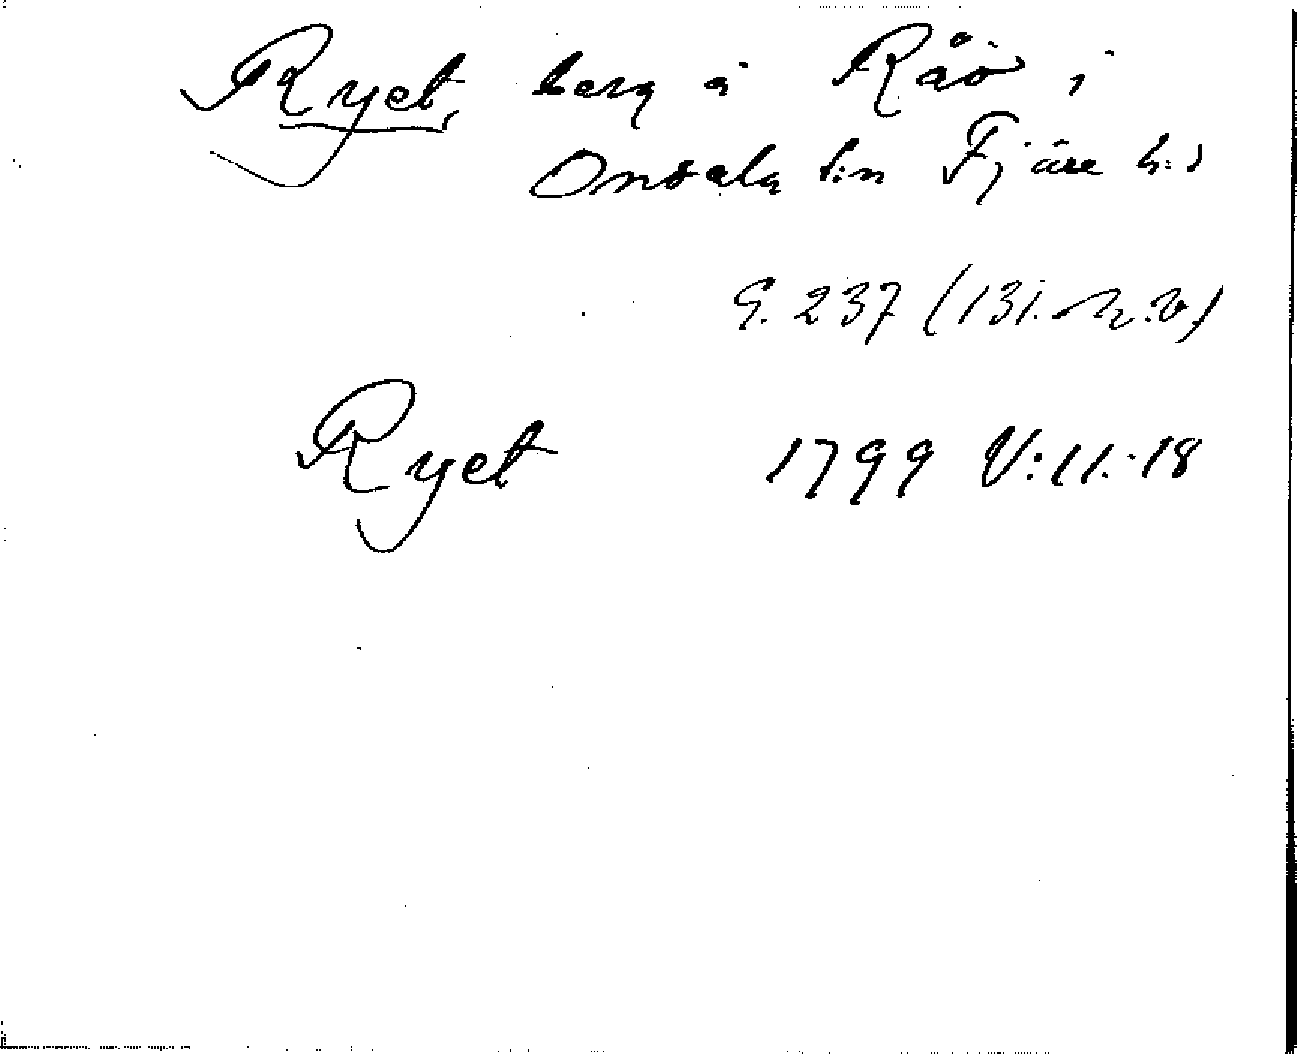 Ryet, berg å Råö i
Onsala s:n Fjäre h:d
G. 237 (131.
Ryet 1799 V:11:18